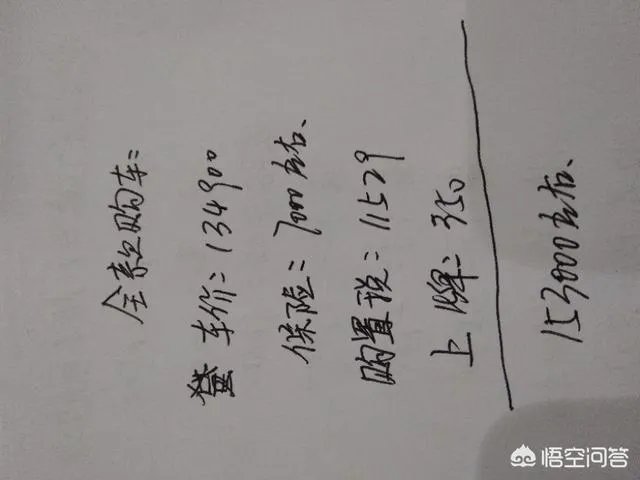 全款购车:
车价:134900
保险:7000左右、
购置税:11529
上牌:350
153000左右、
悟空问答